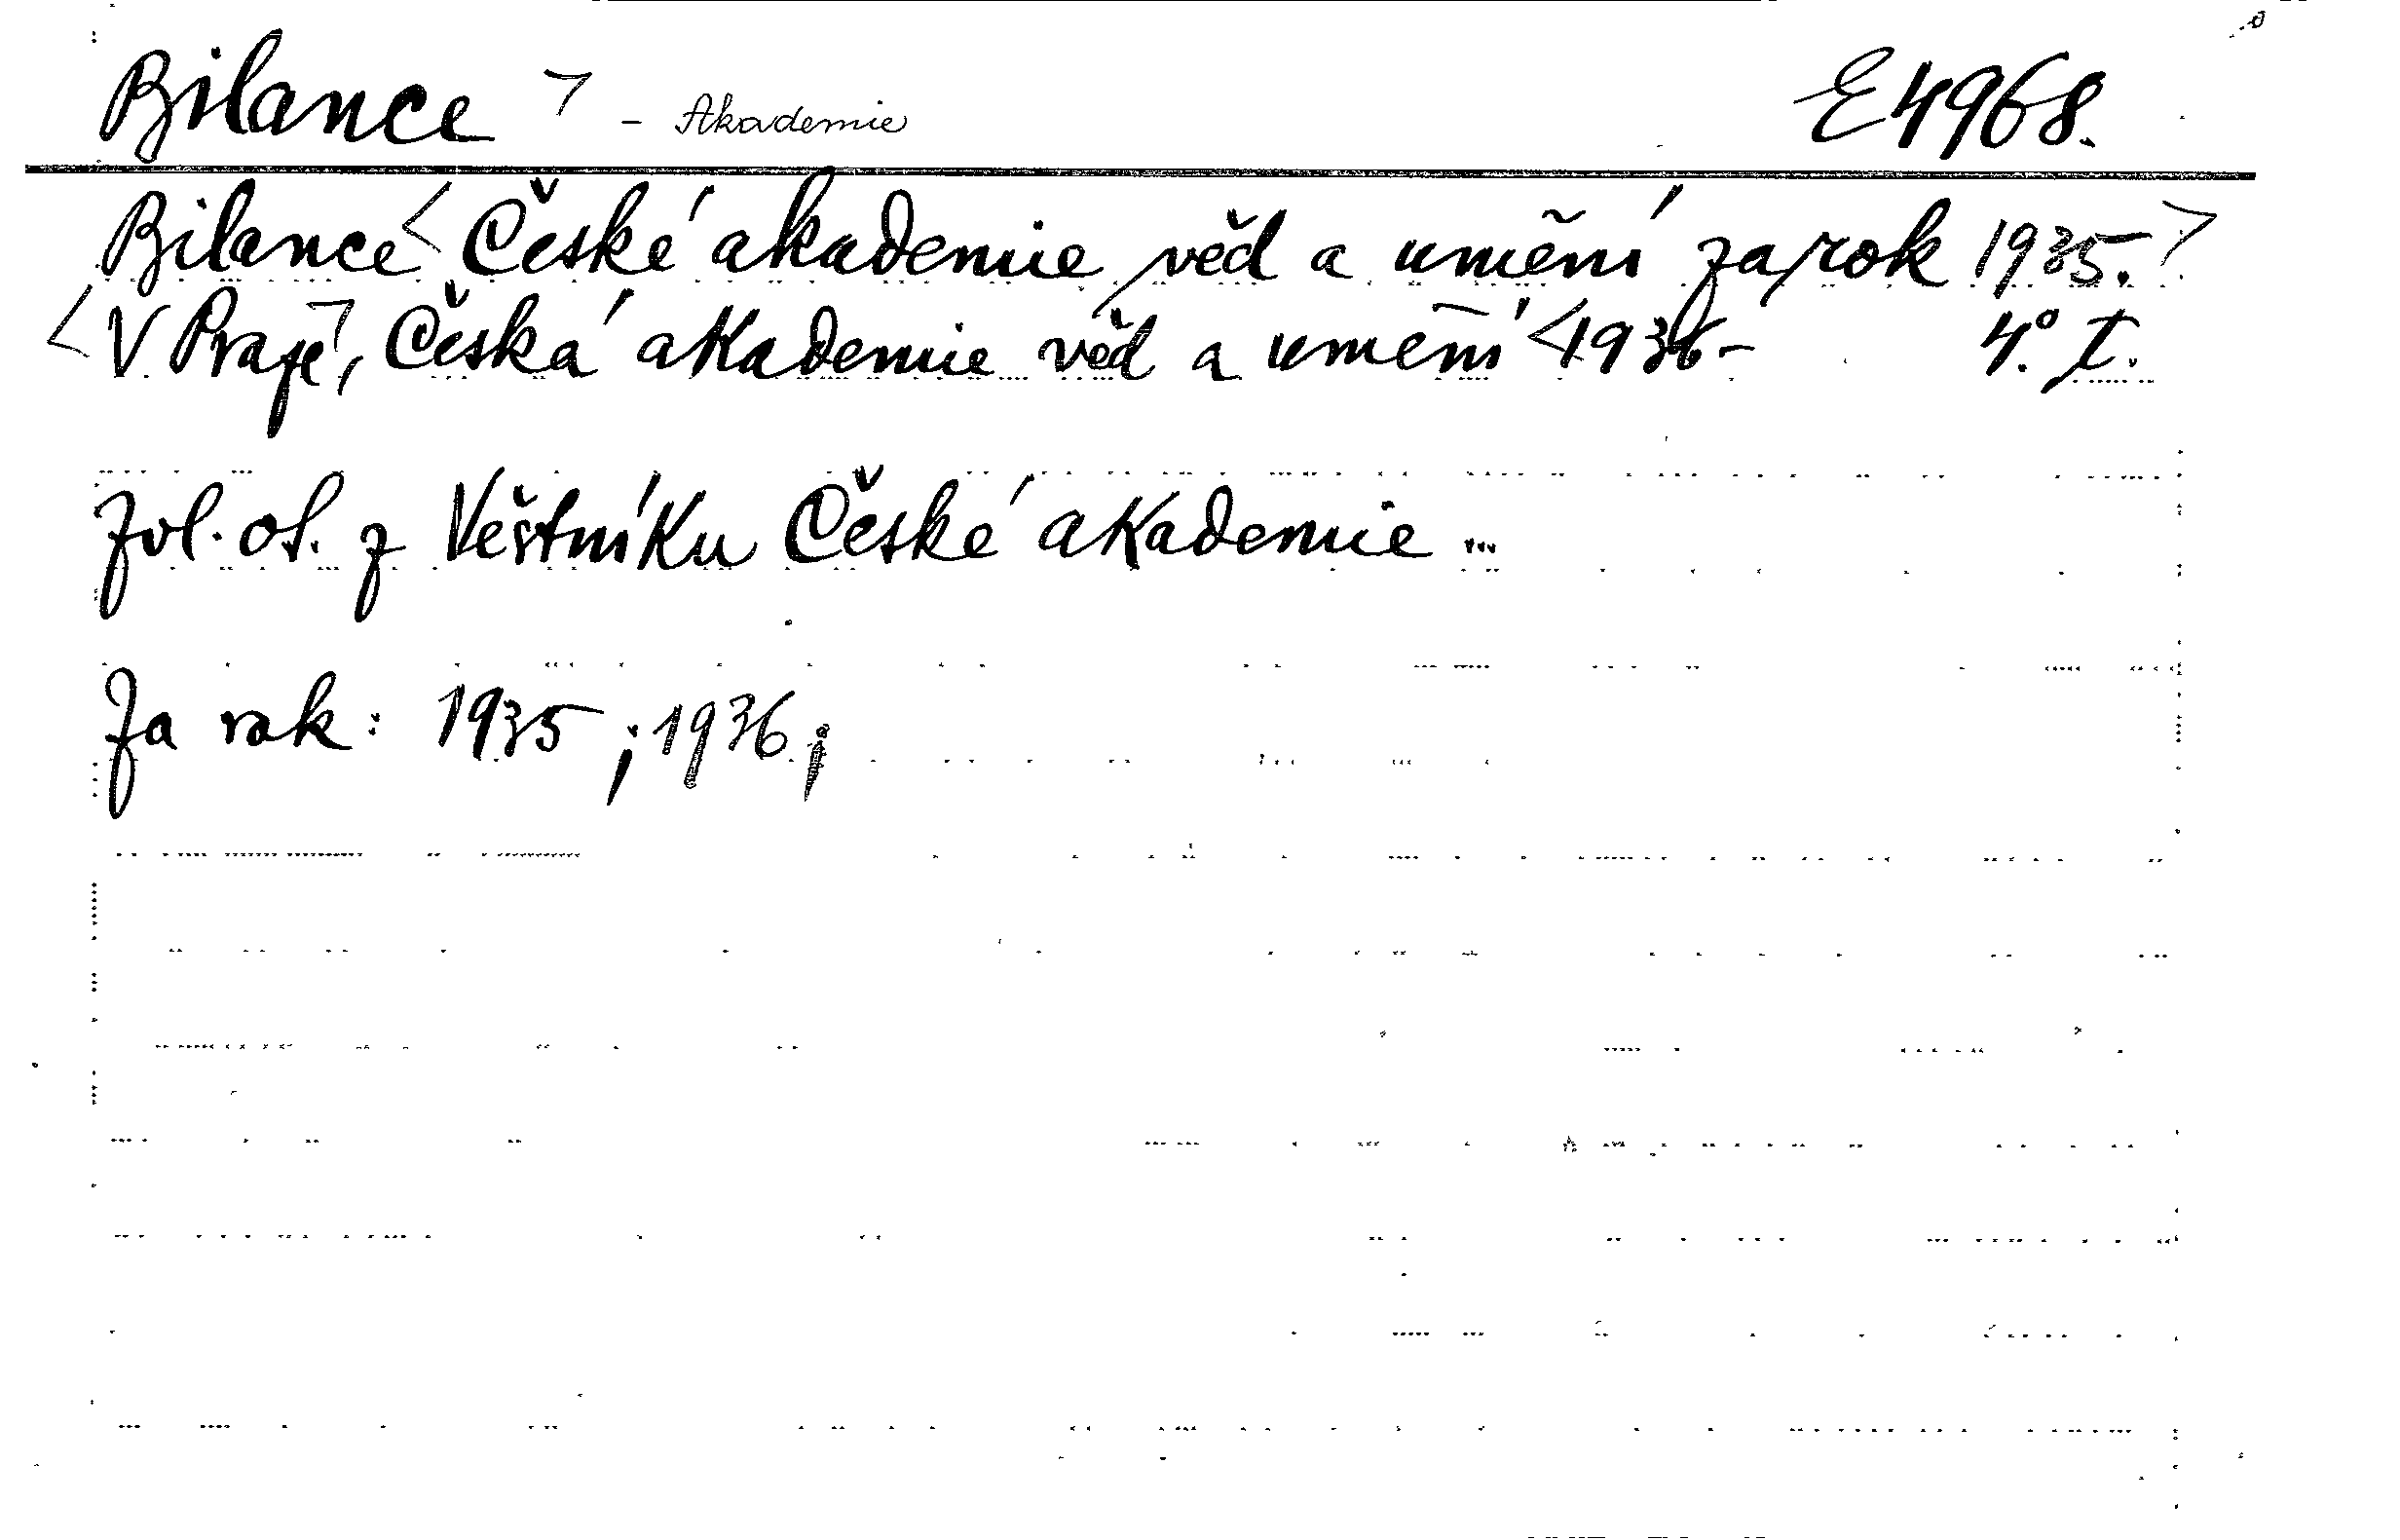 Bilance > - Akademie E 4968.
Bilance < České akademie věd a umění za rok 1935. >
< V Praze >, Česká akademie věd a umění < 1936 - 4°. t.
Zvl. ot. z Věstníku České akademie ...
Za rok: 1935 ; 1936 ;